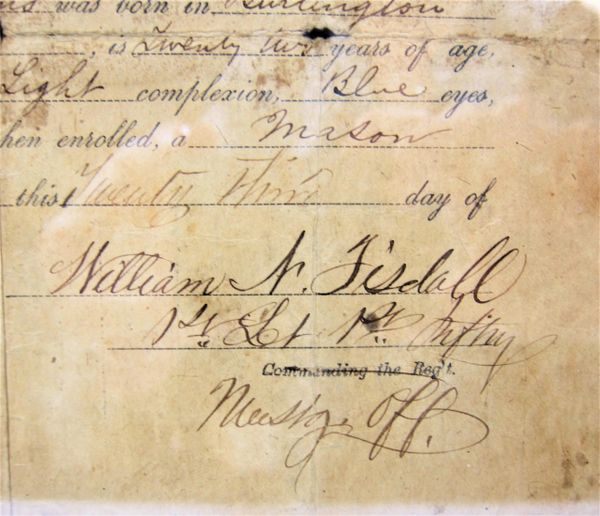 was born in Burlington
, is Twenty two years of age,
Light complexion, Blue eyes,
hen enrolled, a Mason
this Twenty third day of
William N. Tisdall
1st Lt 1st Inftry
Commanding the Reg't.
Mustg. Off.